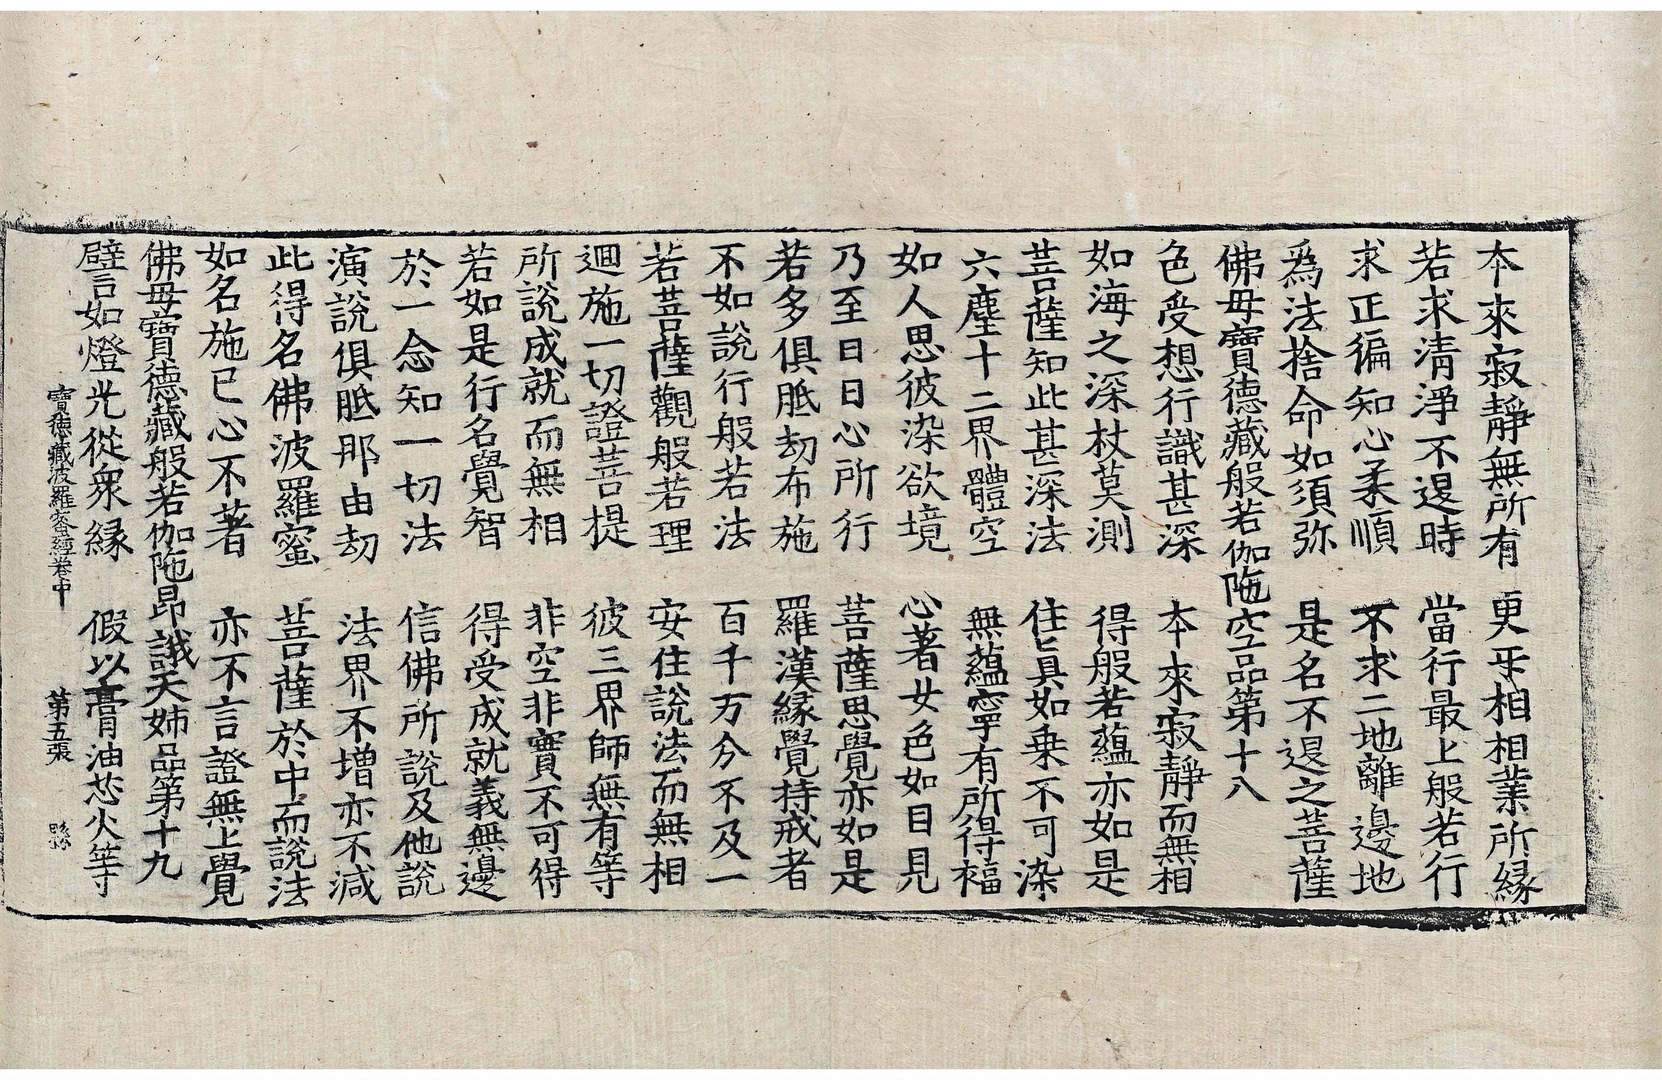 本來寂靜無所有　更㸦相相業所緣
若求清淨不退時　當行最上般若行
求正徧知心柔順　不求二地離邊地
爲法捨命如須弥　是名不退之菩薩
佛母寶德藏般若伽陁空品第十八
色受想行識甚深　本來寂靜而無相
如海之深杖莫測　得般若蘊亦如是
菩薩知此甚深法　住眞如乗不可染
六塵十二界體空　無蘊寧有所得福
如人思彼染欲境　心著女色如目見
乃至日日心所行　菩薩思覺亦如是
若多俱胝劫布施　羅漢緣覺持戒者
不如說行般若法　百千万分不及一
若菩薩觀般若理　安住說法而無相
迴施一切證菩提　彼三界師無有等
所說成就而無相　非空非實不可得
若如是行名覺智　得受成就義無邊
於一念知一切法　信佛所說及他說
演說俱胝那由劫　法界不增亦不減
此得名佛波羅蜜　菩薩於中而說法
如名施已心不著　亦不言證無上覺
佛母寶德藏般若伽陁昂誐天姊品第十九
譬如燈光從衆緣　假以膏油芯火等
寶德藏波羅蜜經卷中　第五張